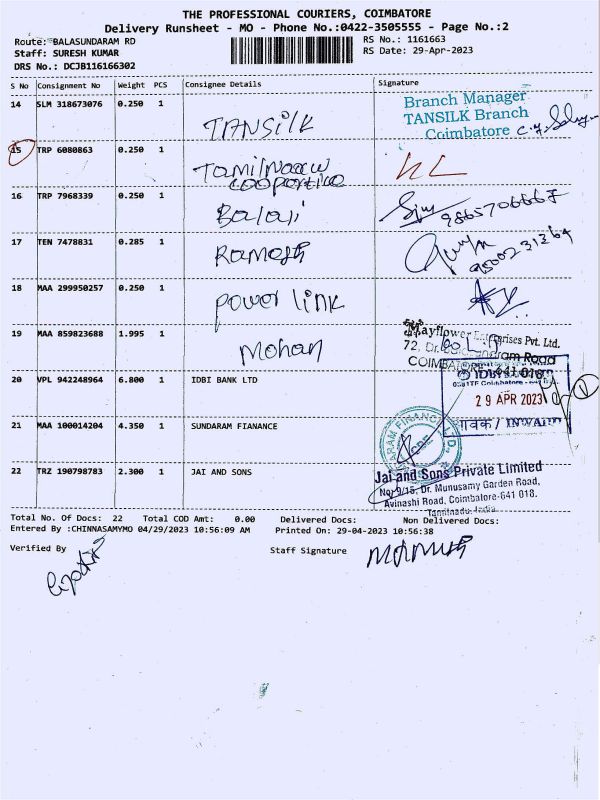 THE PROFESSIONAL COURIERS, COIMBATORE
Delivery Runsheet - MO - Phone No.:0422-3505555 - Page No.:2
Route: BALASUNDARAM RD
RS No.: 1161663
Staff: SURESH KUMAR
RS Date: 29-Apr-2023
DRS No.: DCJB116166302
S No Consignment No Weight PCS Consignee Details Signature
14 SLM 318673076 0.250 1 TANSILK
Branch Manager
TANSILK Branch
Coimbatore
15 TRP 6080863 0.250 1 Tamilnadu
16 TRP 7968339 0.250 1 Balaji
17 TEN 7478831 0.285 1 Ramesh 9500231264
18 MAA 299950257 0.250 1 Power link
19 MAA 859823688 1.995 1 Mohan
Mayflower Enterprises Pvt. Ltd.
72, Dr.
COIMBATORE - 641 018
20 VPL 942248964 6.800 1 IDBI BANK LTD
29 APR 2023
आवक / INWARD
21 MAA 100014204 4.350 1 SUNDARAM FIANANCE
22 TRZ 190798783 2.300 1 JAI AND SONS
Jai and Sons Private Limited
No: 9/15, Dr. Munusamy Garden Road,
Avinashi Road, Coimbatore-641 018.
Tamilnadu, India
Total No. Of Docs: 22 Total COD Amt: 0.00 Delivered Docs: Non Delivered Docs:
Entered By :CHINNASAMYMO 04/29/2023 10:56:09 AM Printed On: 29-04-2023 10:56:38
Verified By
Staff Signature